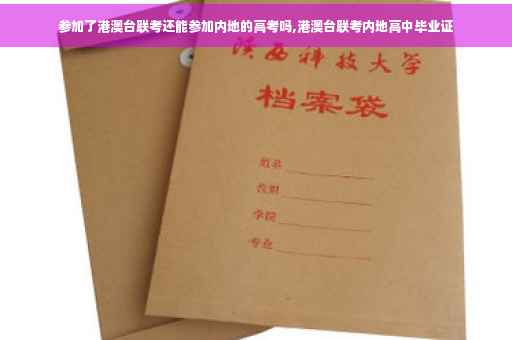 参加了港澳台联考还能参加内地的高考吗,港澳台联考内地高中毕业证
陕西科技大学
档案袋
姓名
班级
学院
专业